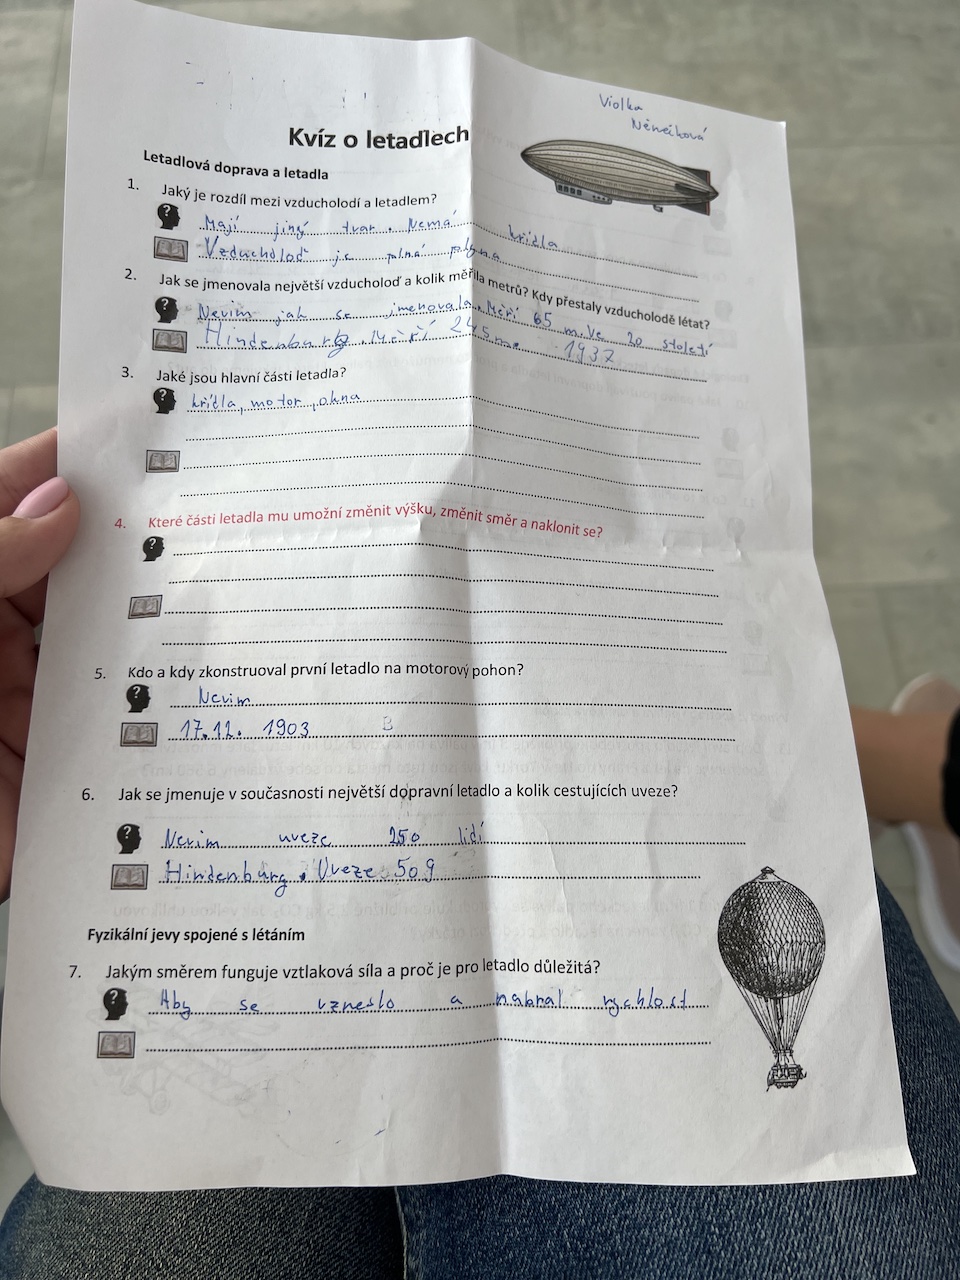 Violka
Němeiková
Kvíz o letadlech
Letadlová doprava a letadla
1. Jaký je rozdíl mezi vzducholodí a letadlem?
Mají jiný tvar. Nemá křídla
Vzducholoď je plná plynu
2. Jak se jmenovala největší vzducholoď a kolik měřila metrů? Kdy přestaly vzducholodě létat?
Nevim jak se jmenovala. Měří 65 m. Ve 20 století
Hindenburg. Měří 245 me 1937
3. Jaké jsou hlavní části letadla?
křídla, motor, okna
4. Které části letadla mu umožní změnit výšku, změnit směr a naklonit se?
5. Kdo a kdy zkonstruoval první letadlo na motorový pohon?
Nevim
17.12. 1903 B
6. Jak se jmenuje v současnosti největší dopravní letadlo a kolik cestujících uveze?
Nevim uveze 250 lidí
Hindenburg. Uveze 509
Fyzikální jevy spojené s létáním
7. Jakým směrem funguje vztlaková síla a proč je pro letadlo důležitá?
Aby se vzneslo a nabral rychlost